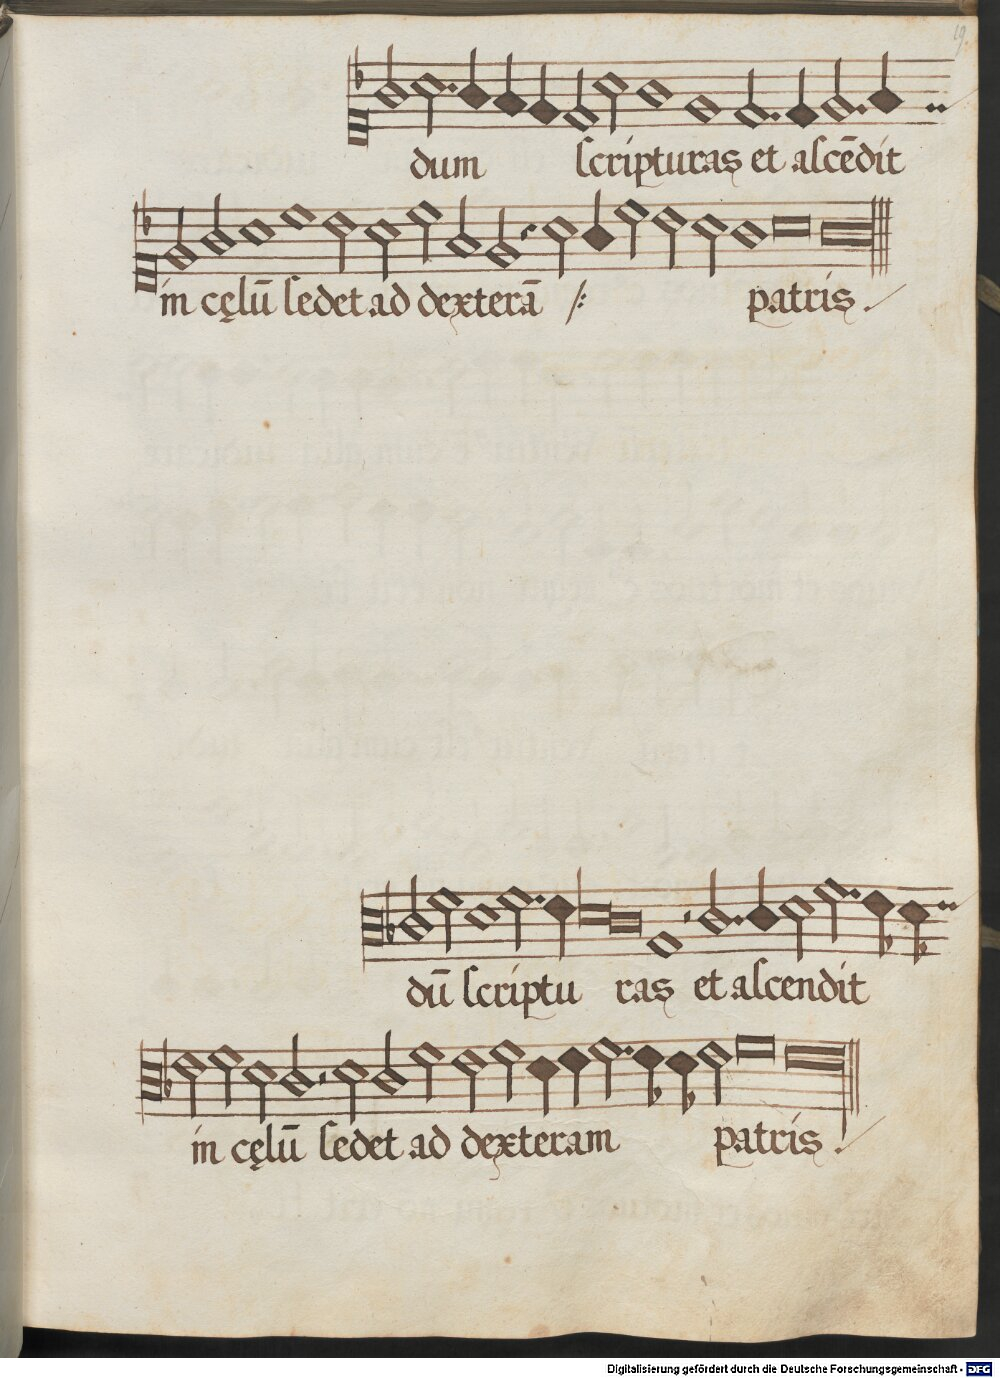 19.
dum scripturas et ascēdit
in cęlū sedet ad dexterā /: patris .
dū scriptu ras et ascendit
in cęlū sedet ad dexteram patris .
Digitalisierung gefördert durch die Deutsche Forschungsgemeinschaft - DFG